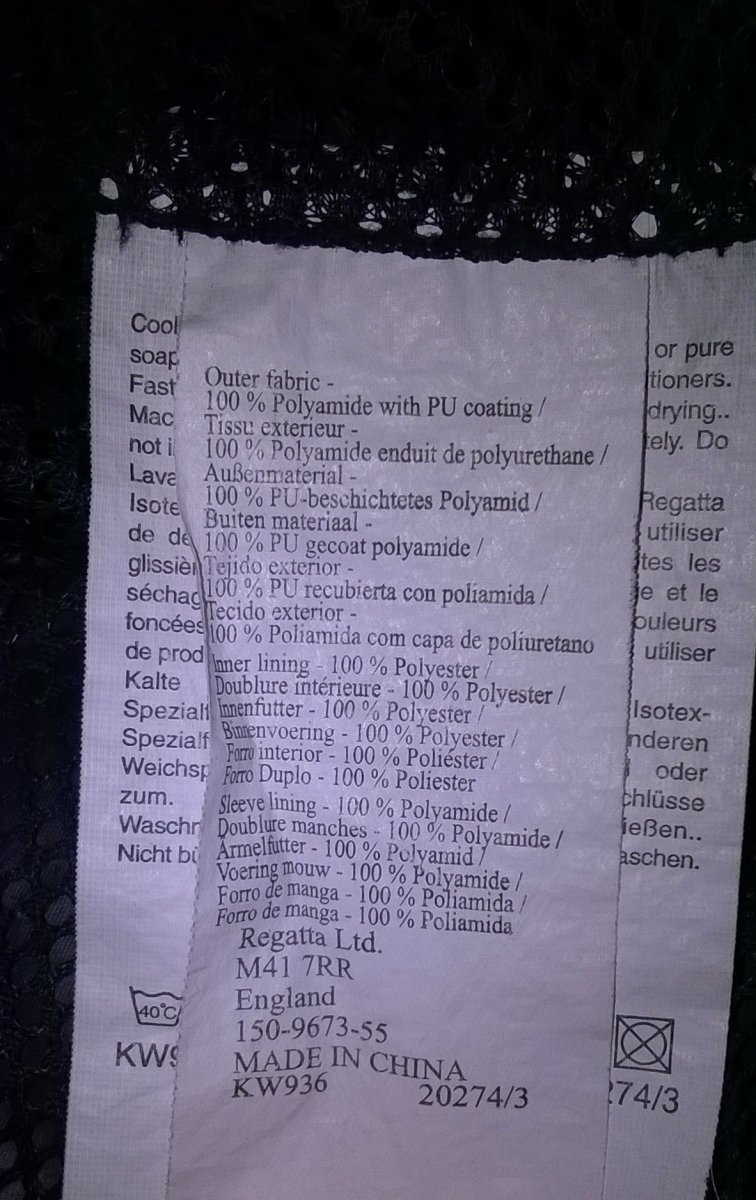 Outer fabric -
100 % Polyamide with PU coating /
Tissu exterieur -
100 % Polyamide enduit de polyurethane /
Außenmaterial -
100 % PU-beschichtetes Polyamid /
Buiten materiaal -
100 % PU gecoat polyamide /
Tejido exterior -
100 % PU recubierta con poliamida /
Tecido exterior -
100 % Poliamida com capa de poliuretano
Inner lining - 100 % Polyester /
Doublure intérieure - 100 % Polyester /
Innenfutter - 100 % Polyester /
Binnenvoering - 100 % Polyester /
Forro interior - 100 % Poliéster /
Forro Duplo - 100 % Poliester
Sleeve lining - 100 % Polyamide /
Doublure manches - 100 % Polyamide /
Armelfutter - 100 % Polyamid /
Voering mouw - 100 % Polyamide /
Forro de manga - 100 % Poliamida /
Forro de manga - 100 % Poliamida
Regatta Ltd.
M41 7RR
England
150-9673-55
MADE IN CHINA
KW936 20274/3
Cool
soap or pure
Fast tioners.
Mac drying..
not i tely. Do
Lava
Isote Regatta
de de utiliser
glissièr tes les
séchag e et le
foncées ouleurs
de prod utiliser
Kalte
Spezialf Isotex-
Spezialf nderen
Weichsp oder
zum. chlüsse
Waschr ießen..
Nicht bü aschen.
40°C
KW9 274/3